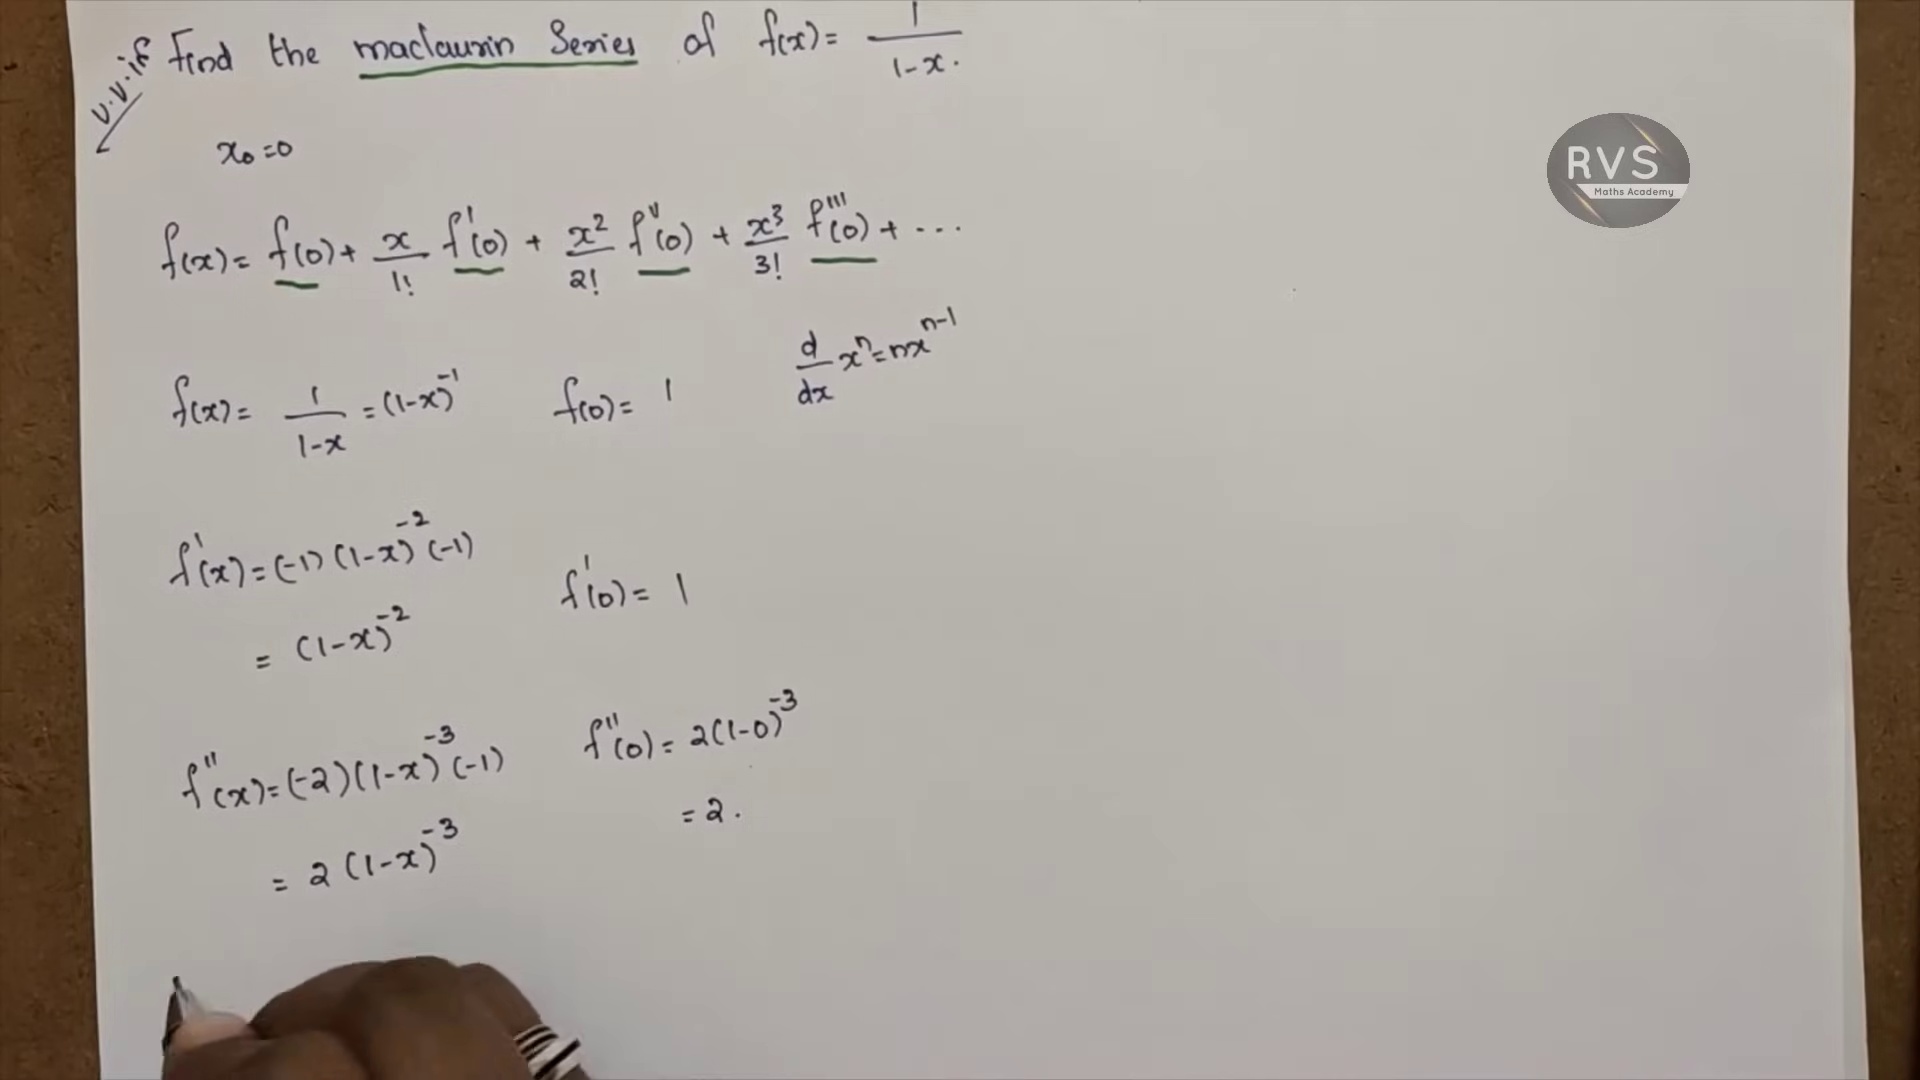 v.v.if Find the maclaurin Series of f(x)= 1/1-x.
RVS
Maths Academy
x₀=0
f(x)= f(0)+ x/1! f'(0) + x²/2! f''(0) + x³/3! f'''(0) + ...
f(x)= 1/1-x = (1-x)⁻¹ f(0)= 1 d/dx xⁿ=nxⁿ⁻¹
f'(x)=(-1)(1-x)⁻²(-1)
f'(0)= 1
= (1-x)⁻²
f''(x)=(-2)(1-x)⁻³(-1) f''(0)= 2(1-0)⁻³
= 2.
= 2(1-x)⁻³